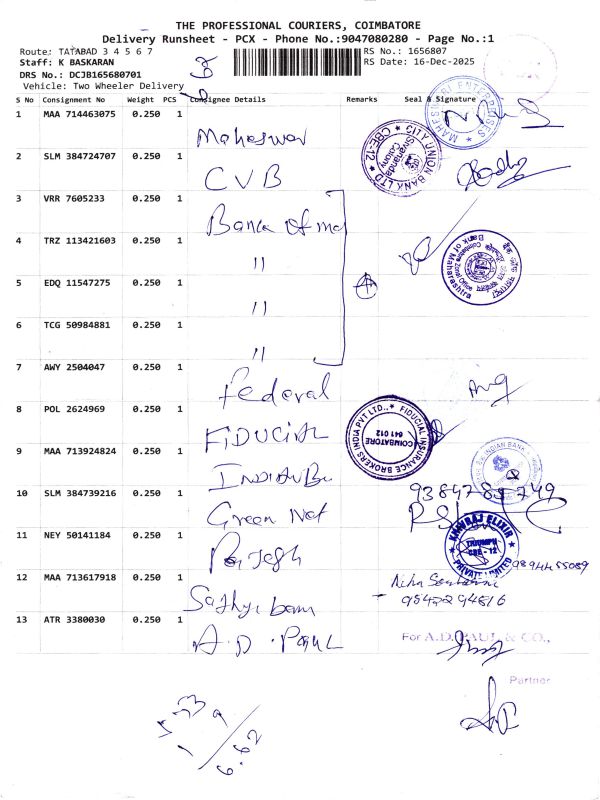 THE PROFESSIONAL COURIERS, COIMBATORE
Delivery Runsheet - PCX - Phone No.:9047080280 - Page No.:1
Route: TATABAD 3 4 5 6 7
RS No.: 1656807
Staff: K BASKARAN
RS Date: 16-Dec-2025
DRS No.: DCJB165680701
Vehicle: Two Wheeler Delivery
S No Consignment No Weight PCS Consignee Details Remarks Seal & Signature
1 MAA 714463075 0.250 1 Maheswar
MAHESWARI ENTERPRISES
2 SLM 384724707 0.250 1 CVB
CITY UNION BANK LTD CBE-12
3 VRR 7605233 0.250 1 Bank of ma
4 TRZ 113421603 0.250 1 "
Bank of Maharashtra
Coimbatore Zonal Office
5 EDQ 11547275 0.250 1 "
6 TCG 50984881 0.250 1 "
7 AWY 2504047 0.250 1 Federal
8 POL 2624969 0.250 1 FIDUCIAL
FIDUCIAL INSURANCE BROKERS INDIA PVT LTD.,
COIMBATORE
641 012
9 MAA 713924824 0.250 1 INDIAN Bn
INDIAN BANK
10 SLM 384739216 0.250 1 Green Net
9384789749
11 NEY 50141184 0.250 1 Rajesh
KHIVRAJ ELIXIR
TRIUMPH
CBE - 12
PRIVATE LIMITED
9894455089
12 MAA 713617918 0.250 1 Sathyibama
9542294816
13 ATR 3380030 0.250 1 A.D. PAUL
For A.D. PAUL & CO.,
Partner